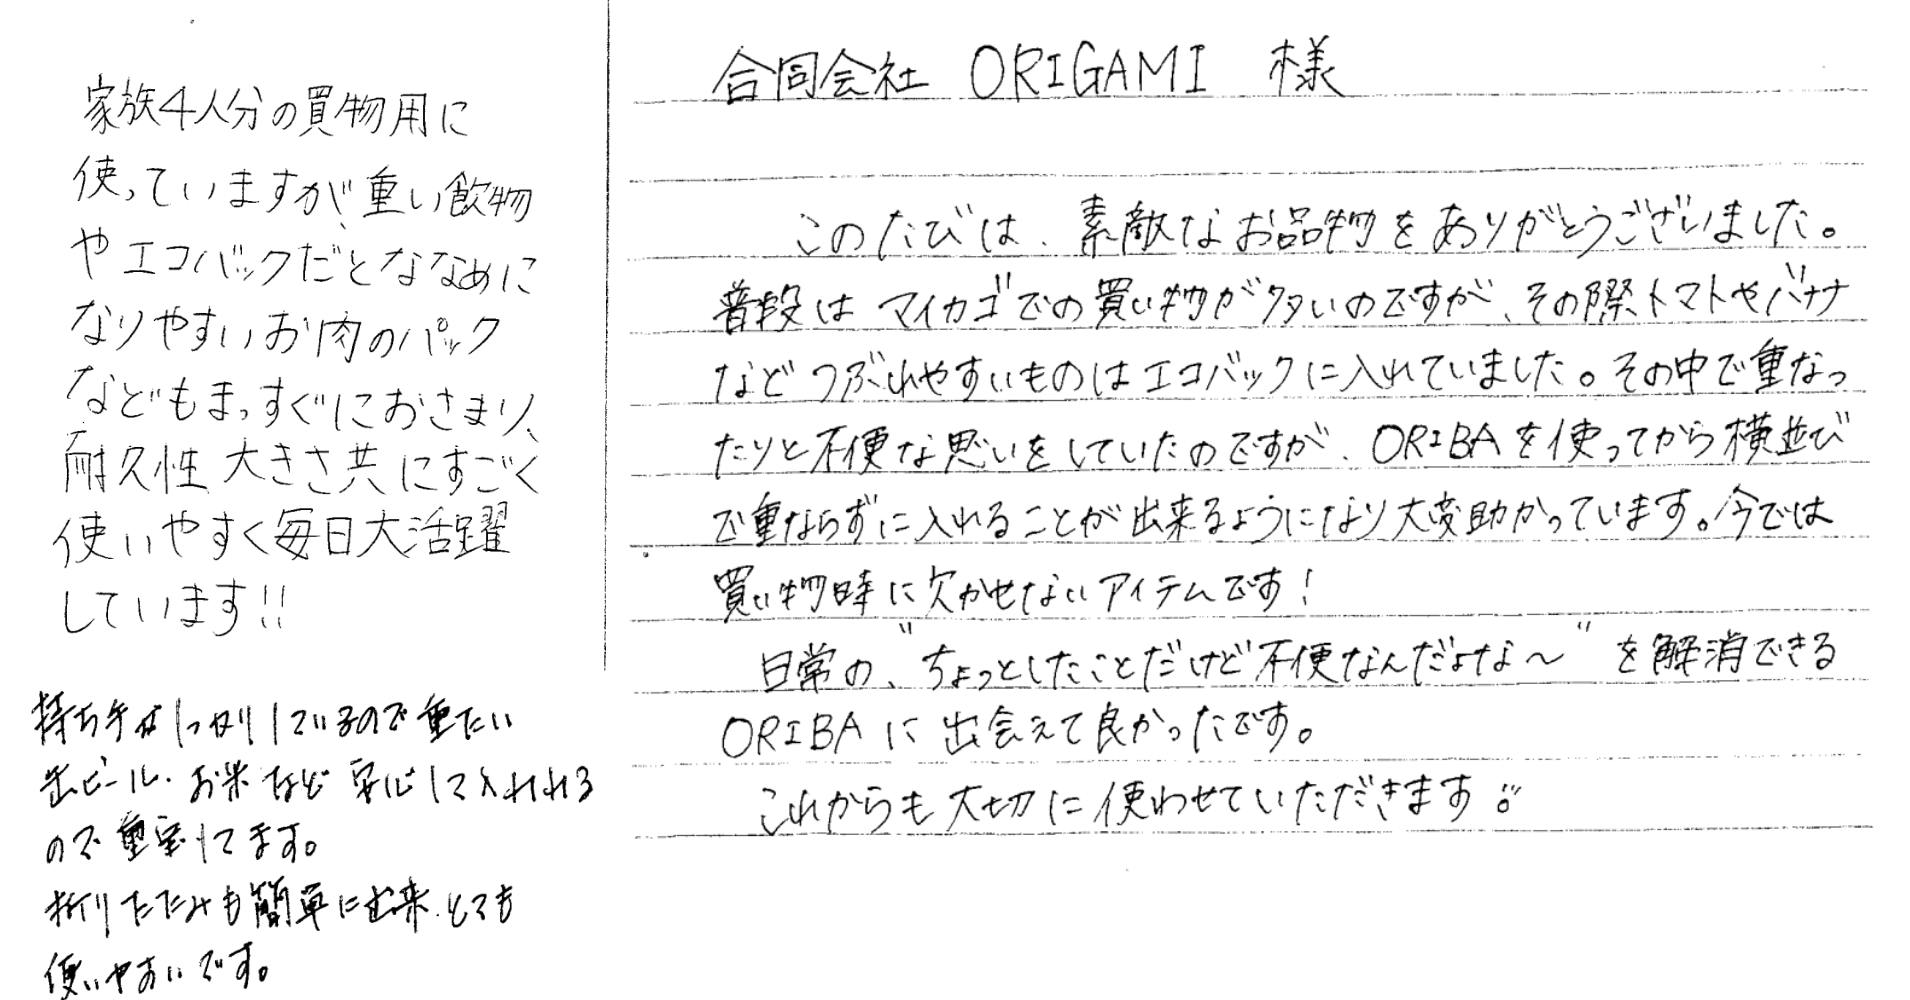 家族4人分の買物用に
使っていますが、重い飲物
やエコバックだとななめに
なりやすいお肉のパック
などもまっすぐにおさまり、
耐久性 大きさ共にすごく
使いやすく毎日大活躍
しています!!
持ち手がしっかりしているので重たい
缶ビール・お米など安心して入れれる
ので重宝してます。
折りたたみも簡単に出来、とても
使いやすいです。
合同会社 ORIGAMI 様
このたびは、素敵なお品物をありがとうございました。
普段はマイカゴでの買い物が多いのですが、その際トマトやバナナ
などつぶれやすいものはエコバックに入れていました。その中で重なっ
たりと不便な思いをしていたのですが、ORIBAを使ってから横並び
で重ならずに入れることが出来るようになり大変助かっています。今では
買い物時に欠かせないアイテムです!
日常の、"ちょっとしたことだけど不便なんだよな～"を解消できる
ORIBAに出会えて良かったです。
これからも大切に使わせていただきます。"